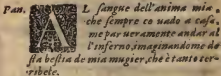 Pan. AL sangue dell'anima mia.
che sempre co uado a casa
me par ueramente andar al
l'inferno, imaginandome de
sta bestia de mia mogiere, che è tanto ter
ribele.